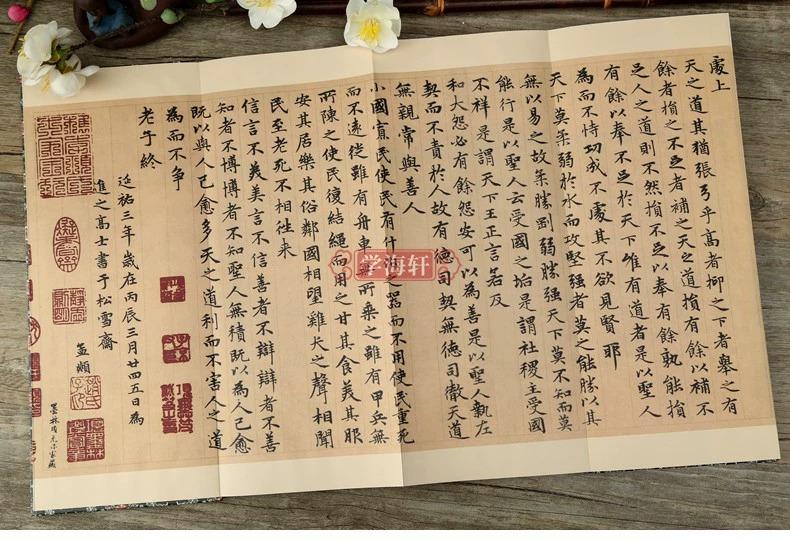 處上
天之道其猶張弓乎高者抑之下者舉之有
餘者損之不足者補之天之道損有餘以補不
足人之道則不然損不足以奉有餘孰能損
有餘以奉不足於天下唯有道者是以聖人
為而不恃功成不處其不欲見賢耶
天下莫柔弱於水而攻堅強者莫之能勝以其
無以易之故柔勝剛弱勝强天下莫不知而莫
能行是以聖人云受國之垢是謂社稷主受國
不祥是謂天下王正言若反
和大怨必有餘怨安可以為善是以聖人執左
契而不責於人故有德司契無德司徹天道
無親常與善人
小國寡民使民有什伯之器而不用使民重死
而不遠徙雖有舟車無所乘之雖有甲兵無
所陳之使民復結繩而用之甘其食美其服
安其居樂其俗鄰國相望雞犬之聲相聞
民至老死不相往來
信言不美美言不信善者不辯辯者不善
知者不博博者不知聖人無積既以為人己愈
既以與人己愈多天之道利而不害人之道
為而不争
老子終
延祐三年歲在丙辰三月廿四五日為
進之高士書于松雪齋
孟頫
墨林項元汴家藏
学海轩